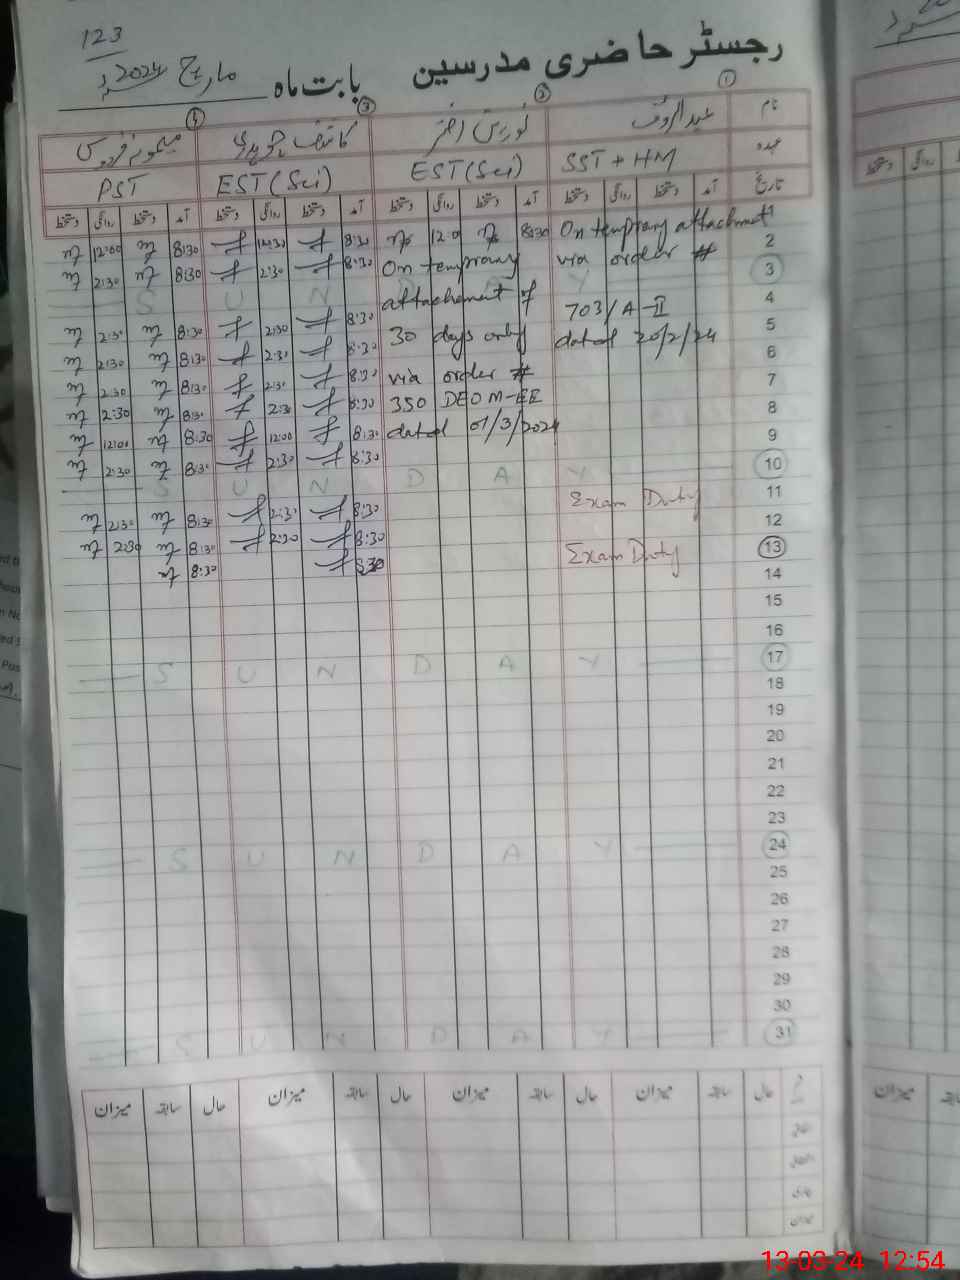 123
رجسٹر حاضری مدرسین بابت ماہ مارچ 2024ء
① ② ③ ④
نام عبدالروف نورین اختر میمونہ فردوس
عہدہ SST + HM EST (Sci) EST (Sci) PST
تاریخ آمد دستخط روانگی دستخط آمد دستخط روانگی دستخط آمد دستخط روانگی دستخط آمد دستخط روانگی دستخط
1 On temprary attachment 8:30 12:0 8:30 8:30 12:00
2 via order # On temprary 8:30 2:30 8:30 2:30
3 S U N D A Y
4 703/A-II attachement of 8:30 2:30 8:30 2:30
5 dated 20/2/24 30 days only 8:30 2:30 8:30 2:30
6 via order # 8:30 2:30 8:30 2:30
7 350 DEO M-EE 8:30 2:30 8:30 2:30
8 dated 01/3/2024 8:30 12:00 8:30 12:00
9 8:30 2:30 8:30 2:30
10 S U N D A Y
11 Exam Duty 8:30 2:30 8:30 2:30
12 8:30 2:30 8:30 2:30
13 Exam Duty 8:30 8:30
14
15
16
17 S U N D A Y
18
19
20
21
22
23
24 S U N D A Y
25
26
27
28
29
30
31 S U N D A Y
حال سابقہ میزان حال سابقہ میزان حال سابقہ میزان حال سابقہ میزان
میزان
13-03-24 12:54